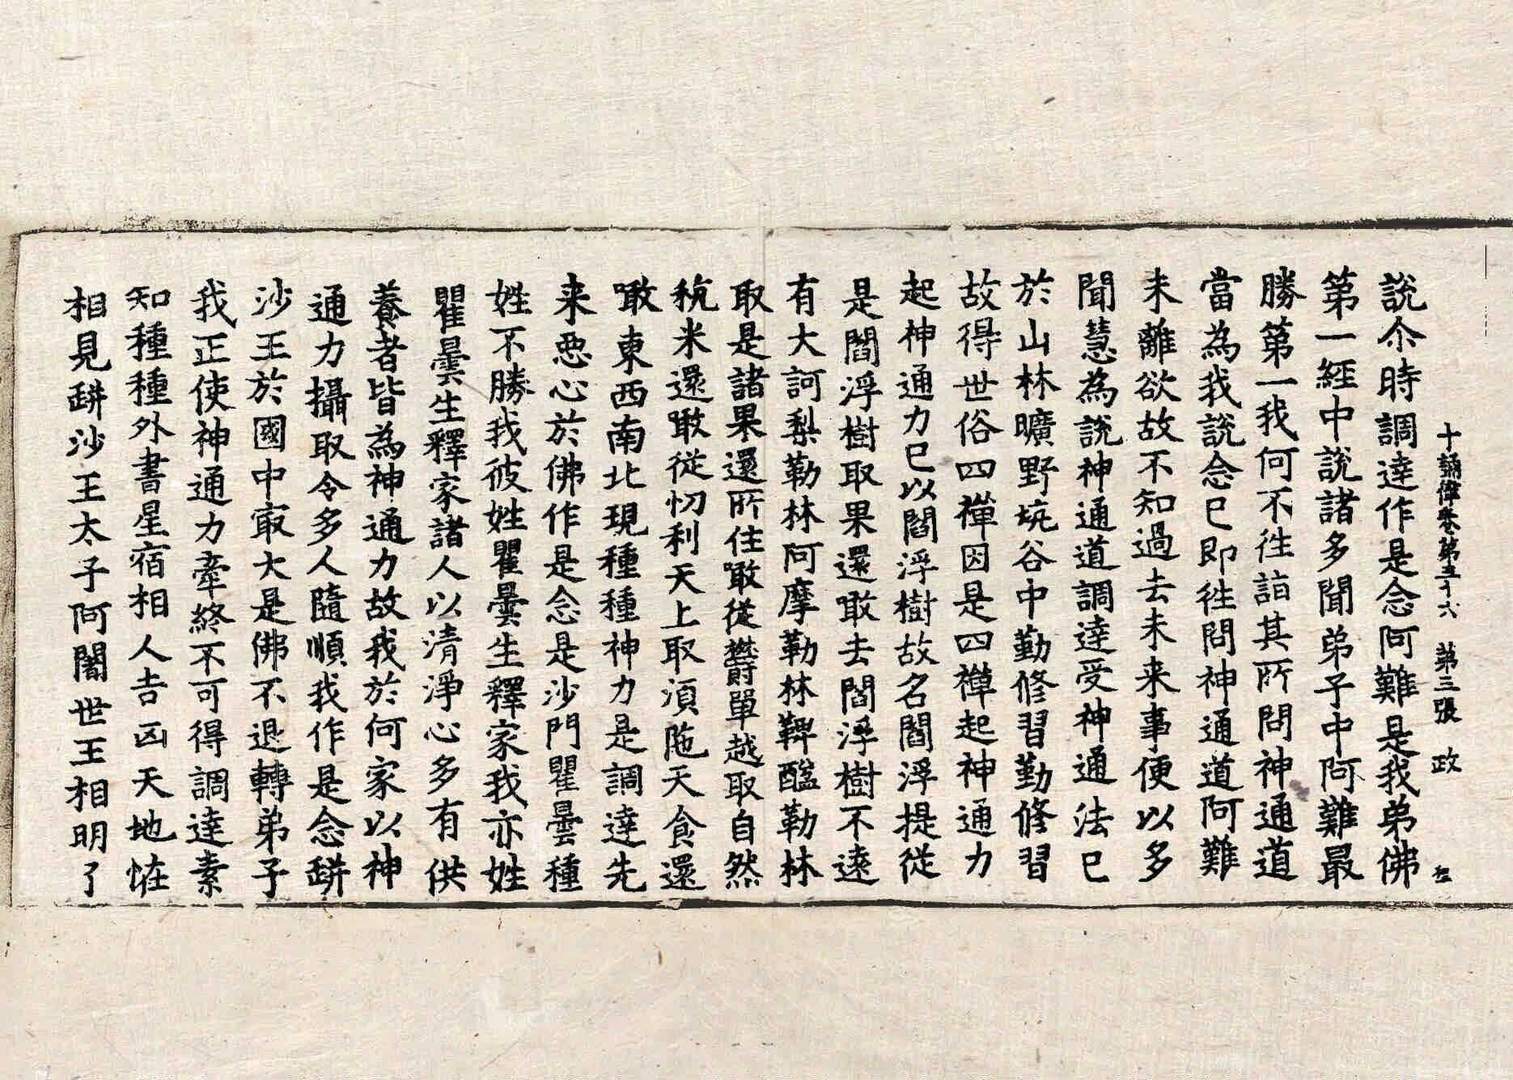 十誦律卷第五十六　第三張　政
說尒時調達作是念阿難是我弟佛
第一經中說諸多聞弟子中阿難最
勝第一我何不徃詣其所問神通道
當為我說念已即徃問神通道阿難
未離欲故不知過去未来事便以多
聞慧為說神通道調達受神通法已
於山林曠野坑谷中勤修習勤修習
故得世俗四禪因是四禪起神通力
起神通力已以閻浮樹故名閻浮提從
是閻浮樹取果還噉去閻浮樹不遠
有大訶梨勒林阿摩勒林鞞醯勒林
取是諸果還所住噉從欝單越取自然
秔米還噉從忉利天上取湏陁天食還
噉東西南北現種種神力是調達先
来惡心於佛作是念是沙門瞿曇種
姓不勝我彼姓瞿曇生釋家我亦姓
瞿曇生釋家諸人以清淨心多有供
養者皆為神通力故我於何家以神
通力攝取令多人隨順我作是念缾
沙王於國中㝡大是佛不退轉弟子
我正使神通力牽終不可得調達素
知種種外書星宿相人吉凶天地恠
相見缾沙王太子阿闍世王相明了